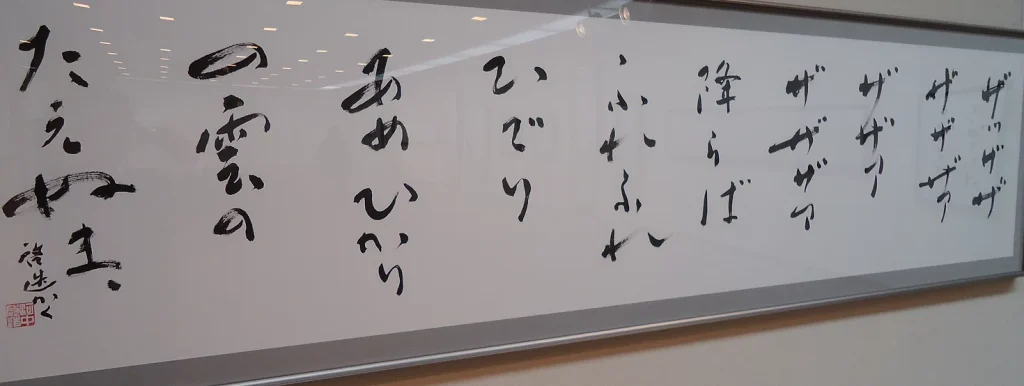 ザッザザ
ザザザァ
ザザァー
ザザザァ
降らば
ふれふれ
ひでり
あめひかり
の雲の
たえぬま
かく